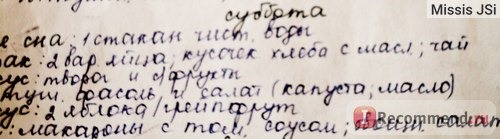 Missis JSi
суббота
е сна: 1 стакан чист. воды
рак: 2 вар. яйца; кусочек хлеба с масл; чай
кус: творог и фрукты
туш. фасоль и салат (капуста, масло)
кус: 2 яблока/грейпфрут
макароны с том. соусом; овощ салат
Recommend.ru